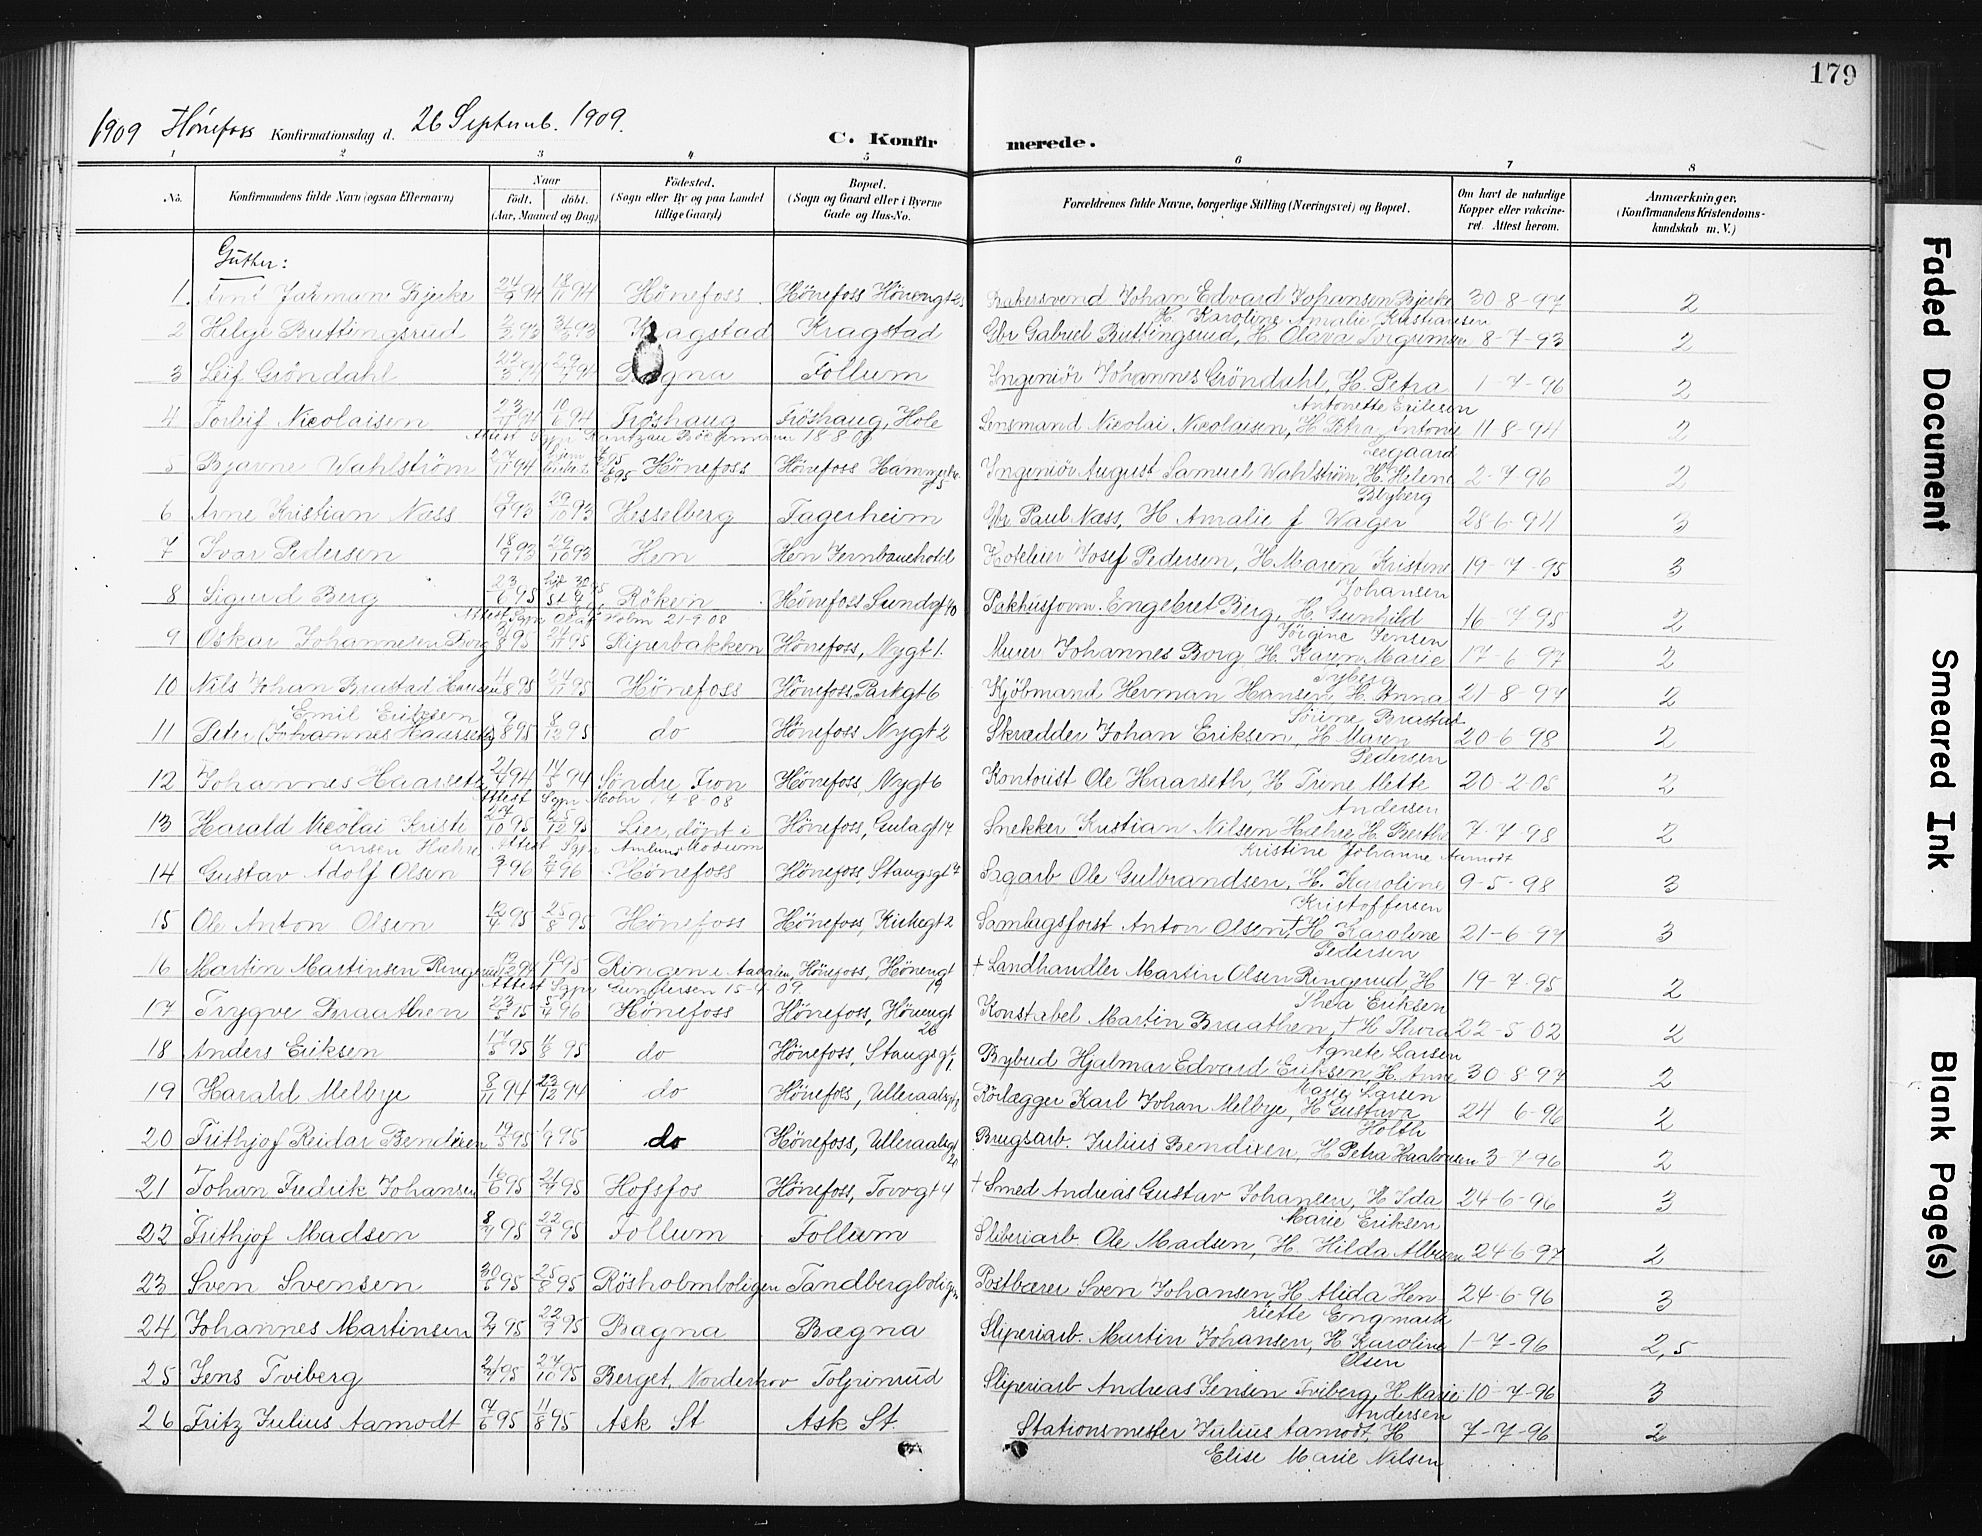 179
1909 Hönefoss Konfirmationsdag d. 26 Septemb. 1909.
C. Konfirmerede.
1 2 3 4 5 6 7 8
No. Konfirmandens fulde Navn (ogsaa Efternavn) Naar født, døbt. (Aar, Maaned og Dag) Fødested. (Sogn eller By og paa Landet tillige Gaard) Bopæl. (Sogn og Gaard eller i Byerne Gade og Hus-No. Forældrenes fulde Navne, borgerlige Stilling (Næringsvei) og Bopæl. Om havt de naturlige Kopper eller vakcineret. Attest herom. Anmærkninger. (Konfirmandens Kristendomskundskab m. V.)
Gutter:
1. Bjerke 24/9 94 18/11 94 Hönefoss Hönefoss Hönengt Bakersvend Johan Edvard Johansen Bjerke H. Karoline Amalie Kristiansen 30-8-97 2
2 Helge Buttingsrud Kragstad Kragstad Gbr Gabriel Buttingsrud, H. Oleva 8-7-93 2
3 Leif Gröndahl Bægna Follum Ingeniör Johannes Gröndahl, H. Petra Antonette Eriksen 1-7-96 2
4 Torleif Nicolaisen 10/6 94 Fröshaug Fröshaug, Hole Lensmand Nicolai Nicolaisen, H. Petra Antonie Leegaard 11-8-94 2
Attest Sgpr
5 Bjarne Wahlström 27/11 94 Hönefoss Hönefoss Ingeniör August Samuel Wahlström, H. Helene Blyberg 2-7-96 2
6 Arne Kristian Næss 29/10 93 Hesselberg Fagerheim Gbr Paul Næss, H Amalie f Wager 28-6-94 3
7 Ivar Pedersen 18/9 93 29/10 93 Hen Hen Jernbanehotel Hoteleier Josef Pedersen, H. Maren Kristine Johansen 19-7-95 3
8 Sigurd Berg 23/6 95 Röken Hönefoss Sundgt 40 Pakhusform. Engebret Berg, H. Gunhild Jörgine Jensen 16-7-95 2
Attest Sgpr Olaf Holm 21-9-08
9 Oskar Johannesen Borg Kiperbakken Hönefoss, Nygt 1. Murer Johannes Borg H. Karen Marie Nyberg 17-6-97 2
10 Nils Johan Brustad Hansen 11/8 95 24/11 95 Hönefoss Hönefoss Parkgt 6 Kjöbmand Herman Hansen, H. Anna Sörine Brustad 21-8-97 2
11 Peter Emil Eriksen (Johannes Haarseth) 9/8 95 8/12 95 do Hönefoss Nygt 2 Skrædder Johan Eriksen, H. Maren Pedersen 20-6-98 2
12 Johannes Haarseth 21/4 94 14/5 94 Söndre Fron Hönefoss, Nygt 6 Kontorist Ole Haarseth, H Trine Mette Andersen 20-2-05 2
Attest Sgpr Mohr 17-8-08
13 Harald Nicolai Kristiansen Hæhre 27/10 95 25/12 95 Lier, döpt i Modum Hönefoss, Gulagt 14 Snekker Kristian Nilsen Hæhre, H. Berthe Kristine Johanne Aamodt 7-7-98 2
Attest Sgpr Amlund
14 Gustav Adolf Olsen Hönefoss Hönefoss, Stangsgt 4 Sagarb Ole Gulbrandsen, H. Karoline Kristoffersen 9-5-98 3
15 Ole Anton Olsen 12/4 95 25/8 95 Hönefoss Hönefoss, Kirkegt 2 Samlagsforst Anton Olsen, † H. Karoline Pedersen 21-6-97 3
16 Martin Martinsen Ringerud 13/12 94 10/1 95 Ringen i Aadalen Hönefoss, Hönengt 19 † Landhandler Martin Olsen Ringerud, H Thea Eriksen 19-7-95 2
Attest Sgpr Gunstersen 15-4-09.
17 Trygve Braathen 23/5 95 5/4 96 Hönefoss Hönefoss, Hönengt 26 Konstabel Martin Braathen, † H. Thora Agnete Larsen 22-5-02 2
18 Anders Eriksen 14/5 95 11/8 95 do Hönefoss, Stangsgt. 1 Bybud Hjalmar Edvard Eriksen, H. Anne Marie Larsen 30-8-97 2
19 Harald Melbye 8/11 94 23/12 94 do Hönefoss, Ulleraalsgt Rörlægger Karl Johan Melbye, H Gustava Holth 24-6-96 2
20 Frithjof Reidar Bendixen 19/5 95 1/9 95 do Hönefoss, Ulleraalsgt 20 Brugsarb. Julius Bendixen, H. Petra Haakonsen 3-7-96 2
21 Johan Fredrik Johansen 16/6 95 21/7 95 Hofsfos Hönefoss, Torvgt 4 † Smed Andreas Gustav Johansen, H Ida Marie Eriksen 24-6-96 3
22 Frithjof Madsen 8/7 95 22/9 95 Follum Follum Sliberiarb. Ole Madsen, H. Hilda Albersen 24-6-97 2
23 Sven Svensen 30/5 95 25/8 95 Rösholmboligen Tandbergboligen Postbærer Sven Johansen, H Alida Henriette Engmark 24-6-96 3
24 Johannes Martinsen 2/7 95 22/9 95 Bægna Bægna Sliperiarb. Martin Johansen, H. Karoline Olsen 1-7-96 2,5
25 Jens Tviberg 27/10 95 Berget, Norderhov Toljerinrud Sliperiarb Andreas Jensen Tviberg, H. Marie Andersen 10-7-96 3
26 Fritz Julius Aamodt 7/6 95 11/8 95 Ask St Ask St. Stationsmester Julius Aamodt, H Elise Marie Nilsen 7-7-96 2
Faded Document
Smeared Ink
Blank Page(s)